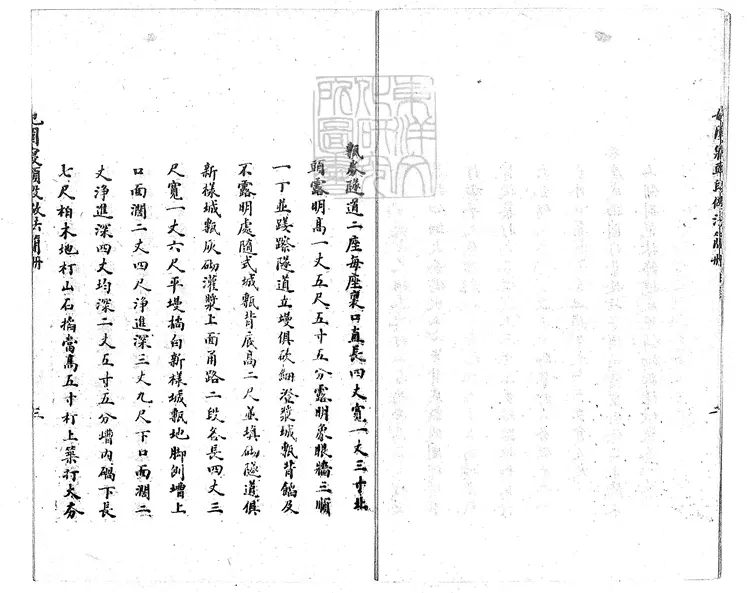 甎券隧道二座每座裏口直長四丈寬一丈三寸北
頭露明高一丈五尺五寸五分露明象眼牆三順
一丁並蹉䠫隧道立墁俱砍細澄漿城甎背餡及
不露明處隨式城甎背底高二尺並填砌隧道俱
新樣城甎灰砌灌漿上面甬路二段各長四丈三
尺寬一丈六尺平墁樁白新樣城甎地脚刨槽上
口面濶二丈四尺淨進深三丈九尺下口面濶二
丈淨進深四丈均深二丈五寸五分槽內碢下長
七尺柏木地椗山石掐當高五寸椗上築打大夯
三
東洋文化研究所圖書